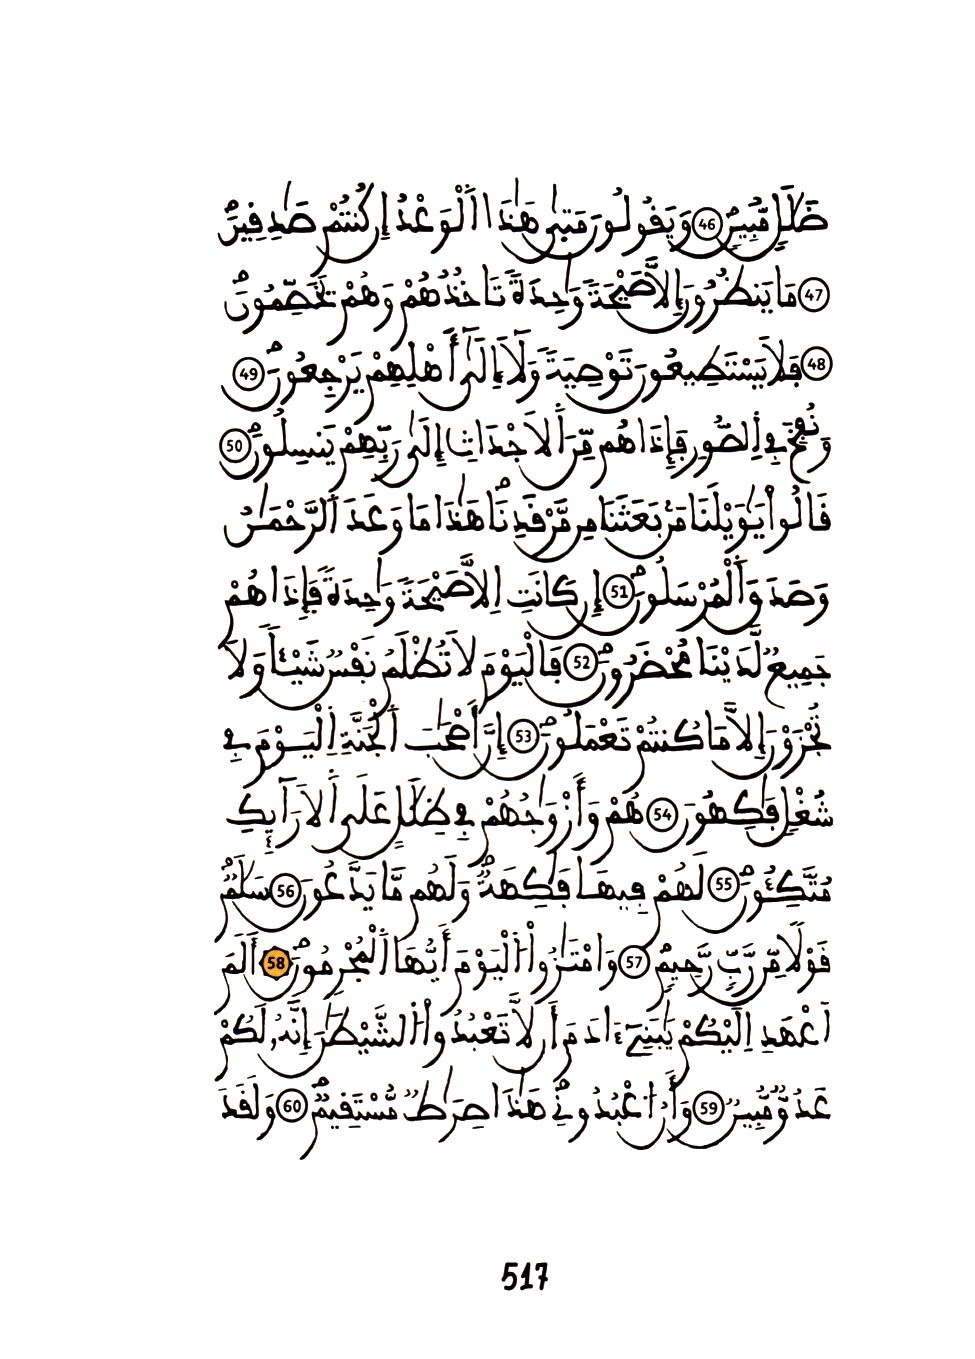 ضَلَٰلٖ مُّبِينٖ 46 وَيَقُولُونَ مَتَىٰ هَٰذَا اَ۬لْوَعْدُ إِن كُنتُمْ صَٰدِقِينَۖ
47 مَا يَنظُرُونَ إِلَّا صَيْحَةٗ وَٰحِدَةٗ تَاخُذُهُمْ وَهُمْ يَخَصِّمُونَۖ
48 فَلَا يَسْتَطِيعُونَ تَوْصِيَةٗ وَلَآ إِلَىٰٓ أَهْلِهِمْ يَرْجِعُونَۖ 49
وَنُفِخَ فِے اِ۬لصُّورِ فَإِذَا هُم مِّنَ اَ۬لَاجْدَاثِ إِلَىٰ رَبِّهِمْ يَنسِلُونَۖ 50
قَالُواْ يَٰوَيْلَنَا مَنۢ بَعَثَنَا مِن مَّرْقَدِنَاۖ هَٰذَا مَا وَعَدَ اَ۬لرَّحْمَٰنُ
وَصَدَقَ اَ۬لْمُرْسَلُونَۖ 51 إِن كَانَتِ اِلَّا صَيْحَةٗ وَٰحِدَةٗ فَإِذَا هُمْ
جَمِيعٞ لَّدَيْنَا مُحْضَرُونَۖ 52 فَالْيَوْمَ لَا تُظْلَمُ نَفْسٞ شَيْـٔاٗ وَلَا
تُجْزَوْنَ إِلَّا مَا كُنتُمْ تَعْمَلُونَۖ 53 إِنَّ أَصْحَٰبَ اَ۬لْجَنَّةِ اِ۬لْيَوْمَ فِے
شُغْلٖ فَٰكِهُونَ 54 هُمْ وَأَزْوَٰجُهُمْ فِے ظِلَٰلٍ عَلَى اَ۬لَارَآئِكِ
مُتَّكِـُٔونَۖ 55 لَهُمْ فِيهَا فَٰكِهَةٞ وَلَهُم مَّا يَدَّعُونَ 56 سَلَٰمٞۖ
قَوْلاٗ مِّن رَّبّٖ رَّحِيمٖۖ 57 وَامْتَٰزُواْ اُ۬لْيَوْمَ أَيُّهَا اَ۬لْمُجْرِمُونَۖ 58 أَلَمَ
اَعْهَدِ اِلَيْكُمْ يَٰبَنِےٓ ءَادَمَ أَن لَّا تَعْبُدُواْ اُ۬لشَّيْطَٰنَ إِنَّهُۥ لَكُمْ
عَدُوّٞ مُّبِينٞ 59 وَأَنُ اُ۟عْبُدُونِےۖ هَٰذَا صِرَٰطٞ مُّسْتَقِيمٞۖ 60 وَلَقَدَ
517